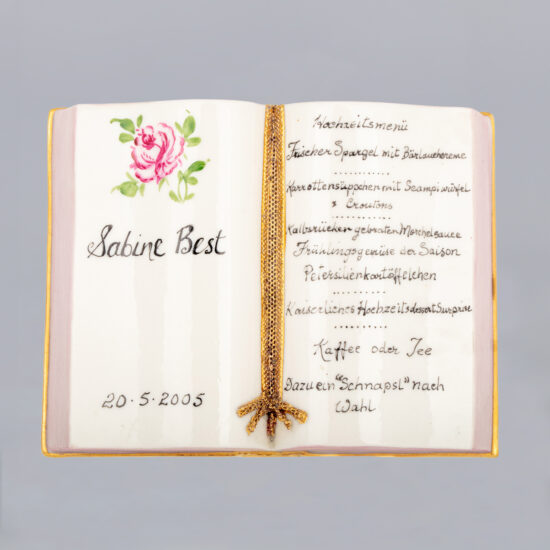 Sabine Best
20·5·2005
Hochzeitsmenü
Frischer Spargel mit Bärlauchcreme
Karrottensüppchen mit Scampiwürfel
& Croutons
Kalbsrücken gebraten Morchelsauce
Frühlingsgemüse der Saison
Petersilienkartöffelchen
Kaiserliches Hochzeitsdessert Surprise
Kaffee oder Tee
Dazu ein "Schnapsl" nach
Wahl